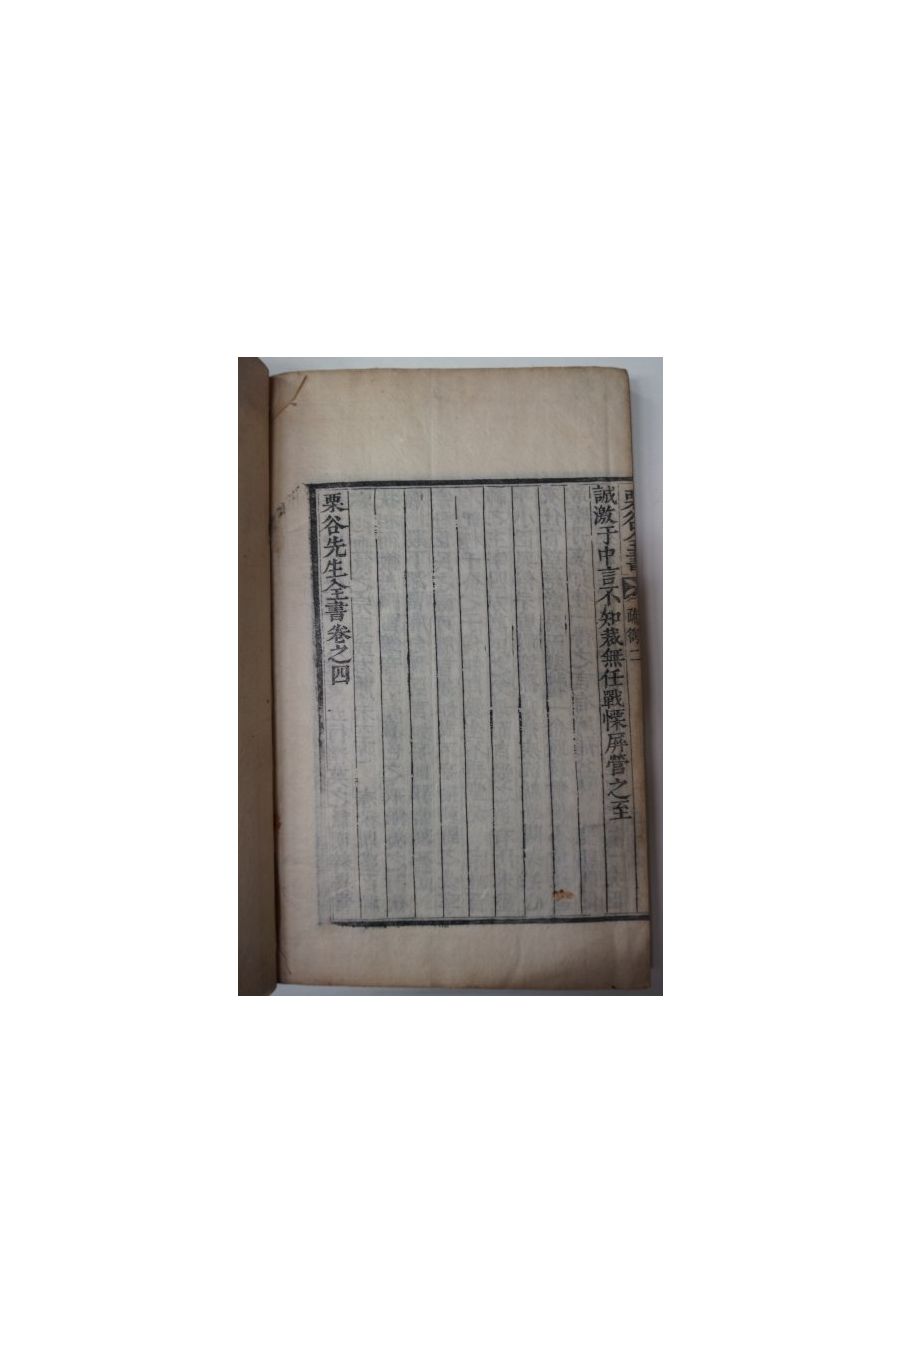 栗谷全書
疏劄二
誠激于中言不知裁無任戰慄屛營之至
栗谷先生全書卷之四